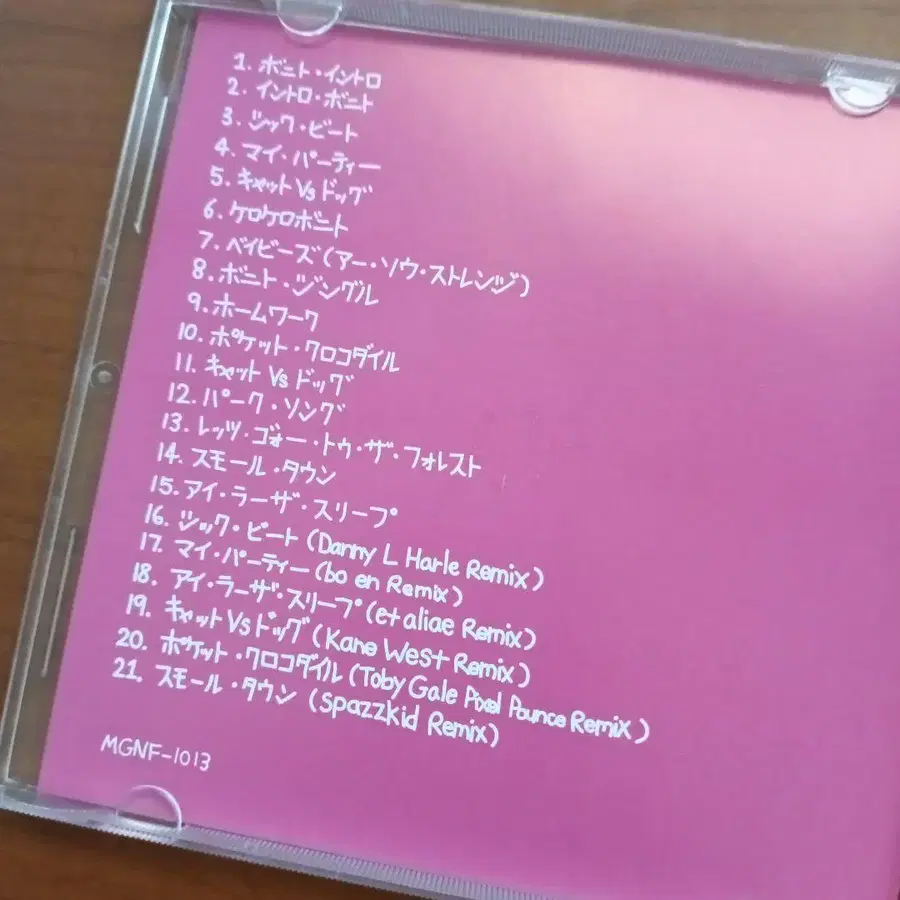 1. ボニト・イントロ
2. イントロ・ボニト
3. シック・ビート
4. マイ・パーティー
5. キャット Vs ドッグ
6. ケロケロボニト
7. ベイビーズ (アー・ソウ・ストレンジ)
8. ボニト・ジングル
9. ホームワーク
10. ポケット・クロコダイル
11. キャット Vs ドッグ
12. パーク・ソング
13. レッツ・ゴォー・トゥ・ザ・フォレスト
14. スモール・タウン
15. アイ・ラーザ・スリープ
16. シック・ビート (Danny L Harle Remix)
17. マイ・パーティー (bo en Remix)
18. アイ・ラーザ・スリープ (et aliae Remix)
19. キャット Vs ドッグ (Kane West Remix)
20. ポケット・クロコダイル (Toby Gale Pixel Pounce Remix)
21. スモール・タウン (Spazzkid Remix)
MGNF-1013